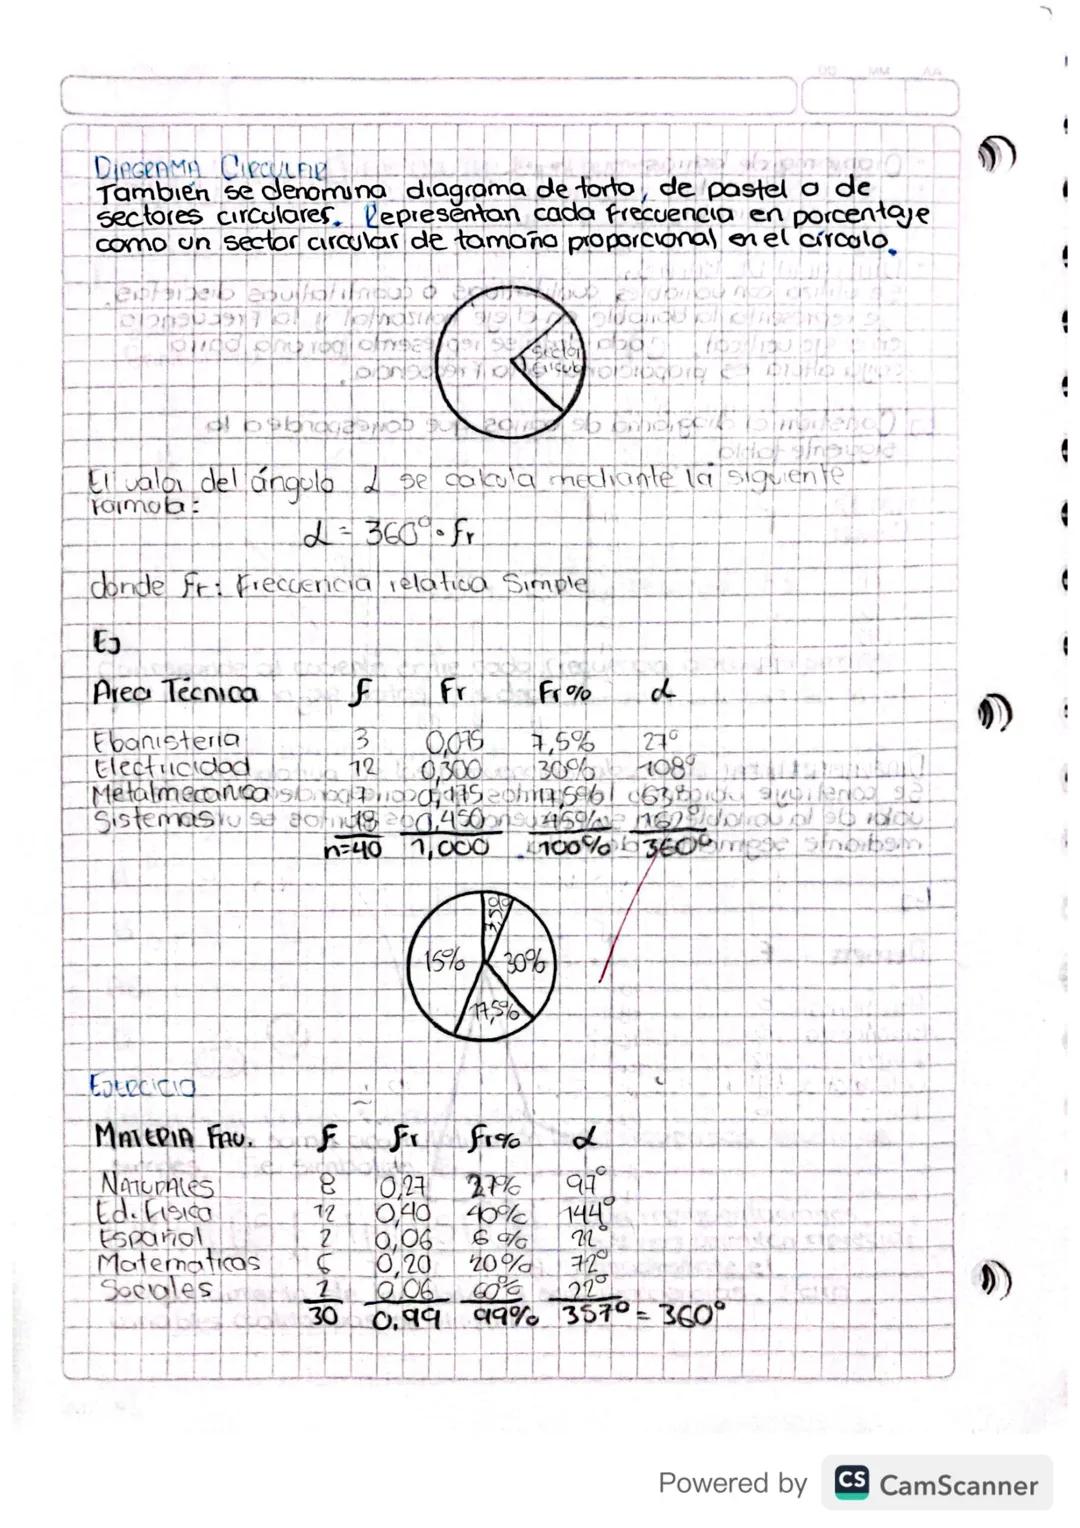 DD MM AA
DIAGRAMA CIRCULAR
También se denomina diagrama de torto, de pastel o de
sectores circulares. Representan cada frecuencia en porcentaje
como un sector circular de tamaño proporcional en el círculo.
Sector
El valor del ángulo α se calcula mediante la siguiente
formula:
α = 360° • fr
donde Fr: Frecuencia relatica Simple
EJ
Area Técnica F Fr Fr% α
Ebanisteria 3 0,075 7,5% 27°
Electricidad 12 0,300 30% 108°
Metalmecanica 7 0,175 17,5% 63°
Sistemas 18 0,450 45% 162°
n=40 1,000 100% 360°
7,5%
15% 30%
17,5%
EJERCICIO
MATERIA FAV. F Fr fr% α
NATURALES 8 0,27 27% 97°
Ed. Fisica 12 0,40 40% 144°
Español 2 0,06 6% 22°
Matematicas 6 0,20 20% 72°
Sociales 2 0,06 60% 22°
30 0,99 99% 357° = 360°
Powered by CS CamScanner